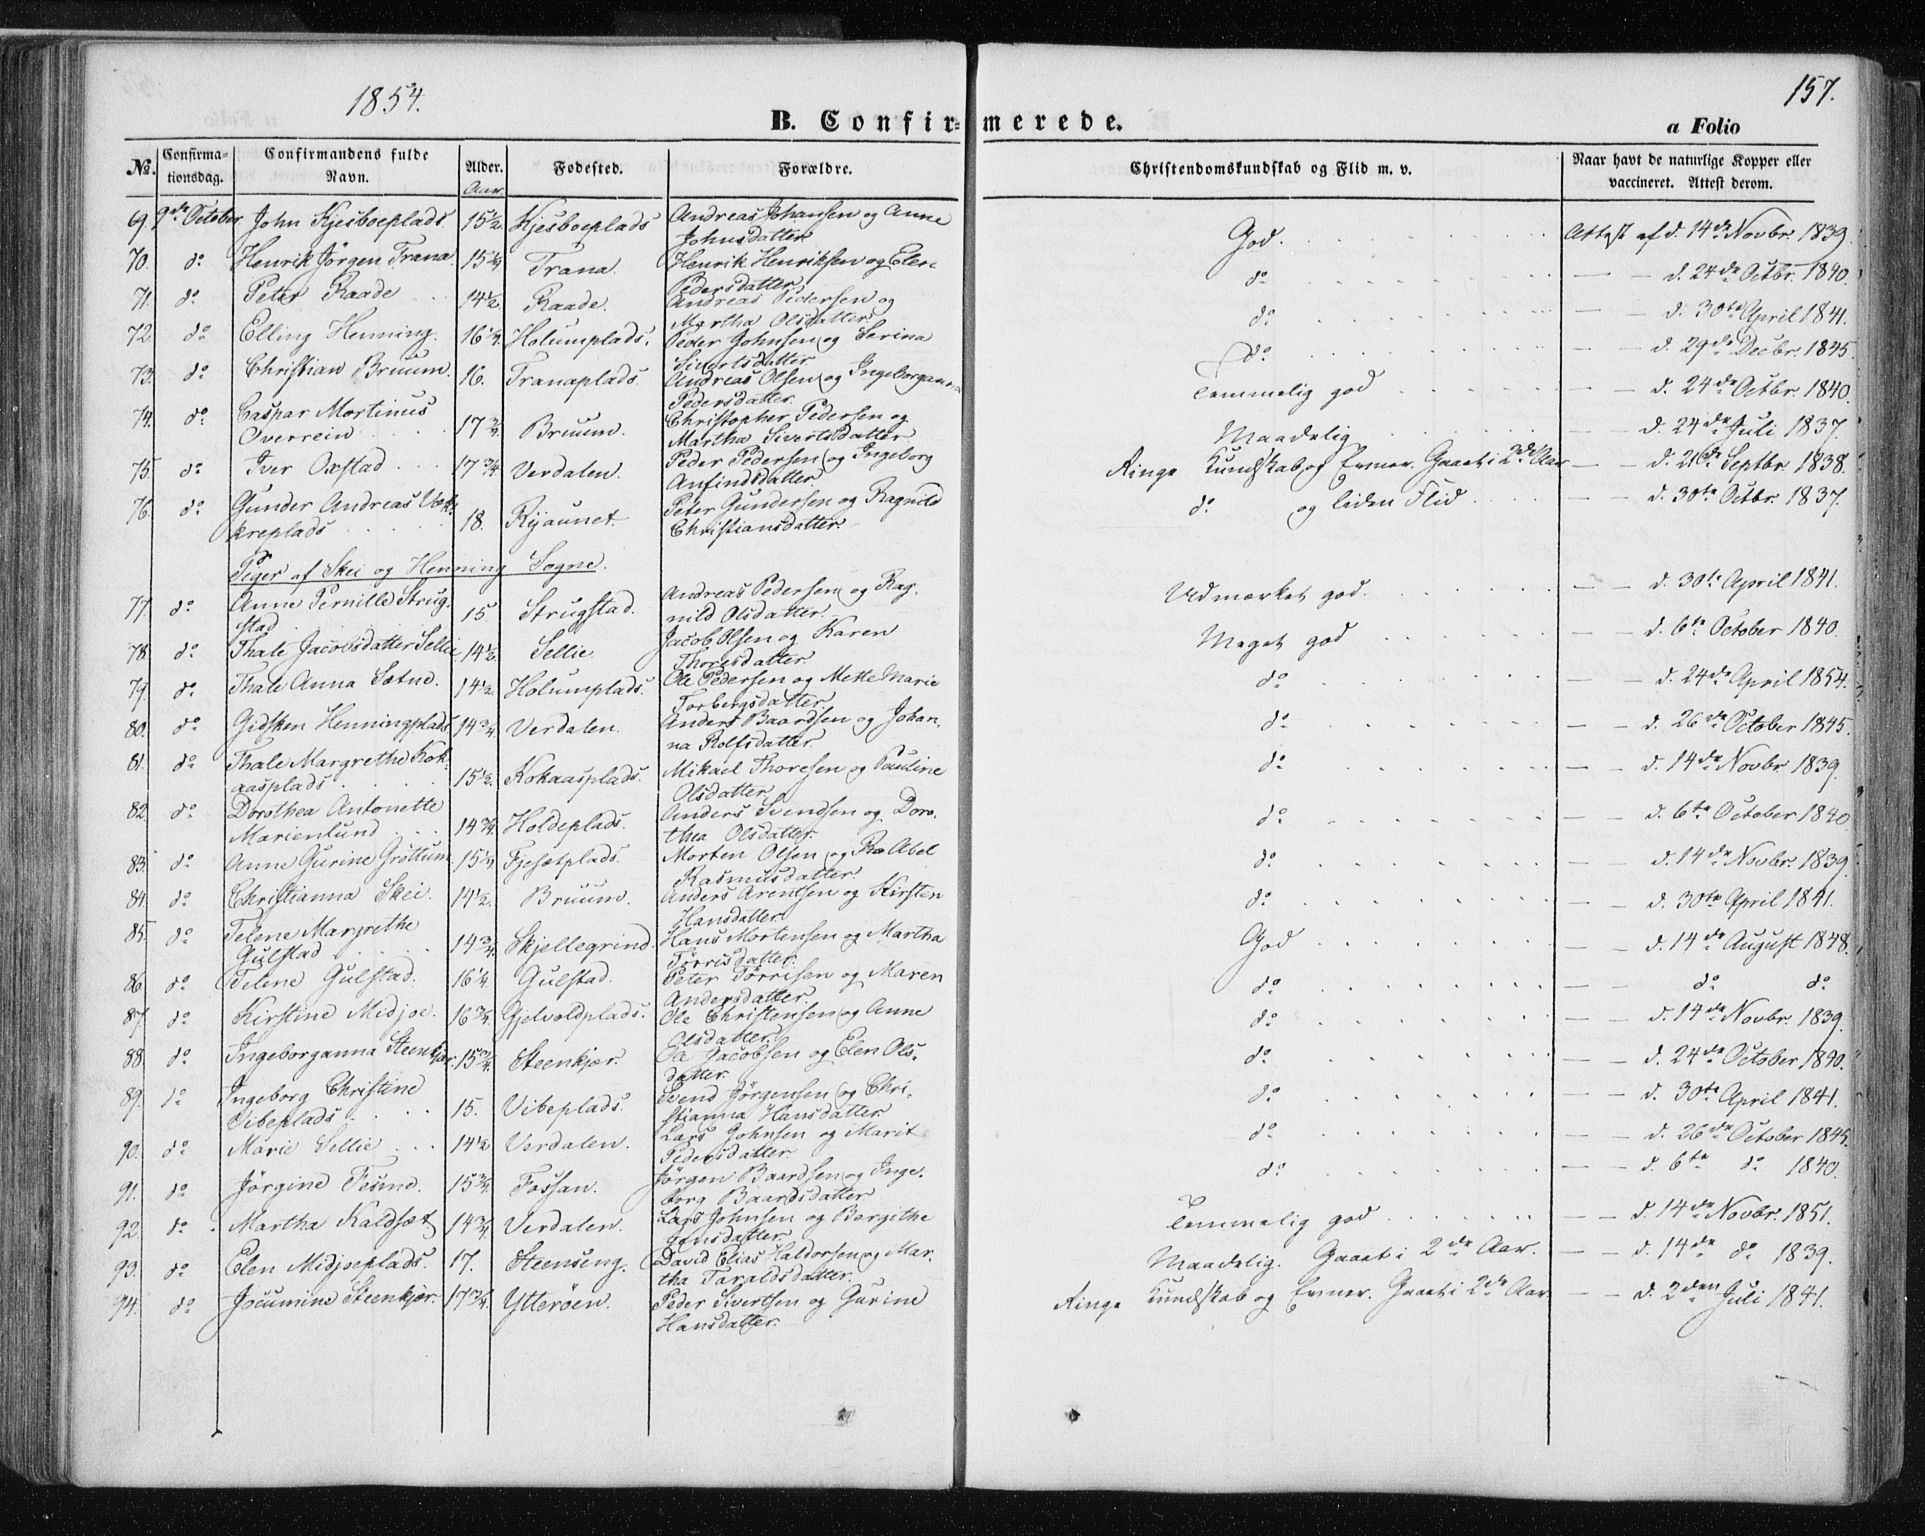 1854.
157.
B. Confirmerede.
a Folio
No.
Confirmationsdag.
Confirmandens fulde Navn.
Alder.
Aar.
Fødested.
Forældre.
Christendomskundskab og Flid m. v.
Naar havt de naturlige Kopper eller vaccineret. Attest derom.
69. 9de October John Kjesboeplads 15½ Kjesboeplads Andreas Johansen og Anne God. Attest af d. 14de Novbr. 1839.
Johnsdatter
70. do Henrik Jörgen Trana. 15¼ Trana. Henrik Henriksen og Elen do — — d. 24de Octbr. 1840.
Pedersdatter
71. do Peter Raade 14½ Raade. Andreas Pedersen og do — — d. 30te April 1841.
Martha Olsdatter
72. do Elling Henning. 16¼ Holumplads. Peder Johnsen og Serina do — — d. 29de Decbr. 1845.
Sivertsdatter
73. do Christian Bruum. 16. Tranaplads. Andreas Olsen og Ingeborganna Temmelig god — — d. 24de Octbr. 1840.
Pedersdatter.
74. do Caspar Martinus 17¾ Bruum. Christopher Pedersen og Maadelig — — d. 24de Juli 1837.
Overrein Martha Sivertsdatter
75. do Iver Oxstad 17¾ Verdalen. Peder Pedersen og Ingeborg Ringe Kundskab og Evner. Gaaet i 2de Aar — — d. 21de Septbr. 1838.
Anfindsdatter
76. do Gunder Andreas Væk- 18. Ryaunet. Peter Gundersen og Ragnild do og liden Flid — — d. 30te Octbr. 1837.
kreplads Christiansdatter.
Piger af Skei og Henning Sogne.
77. do Anne Pernille Strug- 15. Strugstad. Andreas Pedersen og Rag- Udmærket god. — — d. 30te April 1841.
stad nild Olsdatter.
78. do Thale Jacobsdatter Sellie 14½ Sellie. Jacob Olsen og Karen Meget god — — d. 6te October 1840.
Thoresdatter
79. do Thale Anna Sætnd. 14½ Holumplads. Ole Pedersen og Mette Marie do — — d. 24de April 1854.
Torbergsdatter
80. do Gidsken Henningplads 14¾ Verdalen. Anders Baardsen og Johan- do — — d. 26de October 1845.
na Rolfsdatter
81. do Thale Margrethe Kok- 15½ Kokaasplads. Mikael Thoresen og Pauline do — — d. 14de Novbr 1839.
aasplads Olsdatter
82. do Dorothea Antonette 14¾ Holdeplads. Anders Svendsen og Doro- do — — d. 6te October 1840
Marienlund thea Olsdatter.
83. do Anne Gurine Gröttum 15¼ Fjesetplads. Morten Olsen og Abel do — — d. 14de Novbr. 1839.
Rasmusdatter.
84. do Christianna Skei. 14½. Bruum. Anders Arentsen og Kirsten do — — d. 30te April 1841.
Hansdatter
85. do Telene Margrethe 14¾ Skjellegrind. Hans Mortensen og Martha God — — d. 14de August 1848.
Gulstad Törrisdatter.
86. do Telene Gulstad. 16¼ Gulstad. Peter Törrisen og Maren do — — do do
Andersdatter.
87. do Kirstine Midjoe. 16¾ Gjelvoldplads. Ole Christensen og Anne do — — d. 14de Novbr. 1839.
Olsdatter.
88. do Ingeborganna Steenkjær. 15¾ Steenkjær. Ole Jacobsen og Elen Ols- do — — d. 24de October 1840.
datter.
89. do Ingeborg Christine 15. Vibeplads. Svend Jörgensen og Chri- do — — d. 30te April 1841.
Vibeplads. stianna Hansdatter.
90. do Marie Sellie 14½ Verdalen. Lars Johnsen og Marit do — — d. 26de October 1845.
Pedersdatter.
91. do Jörgine Tesmo. 15¾ Fossan. Jörgen Baardsen og Inge- do — — d. 6te do 1840.
borg Baardsdatter
92. do Martha Kaldsæt 14¾ Verdalen. Lars Johnsen og Bergithe Temmelig god — — d. 14de Novbr. 1851.
Jensdatter.
93. do Elen Midjoeplads. 17. Steenseng. David Elias Haldorsen og Mar- Maadelig. Gaaet i 2de Aar. — — d. 14de do 1839.
tha Taraldsdatter.
94. do Jocumine Steenkjær. 17¾ Ytteröen. Peder Sivertsen og Gurine Ringe Kundskab og Evner. Gaaet i 2de Aar — — d. 2den Juli 1841.
Hansdatter.